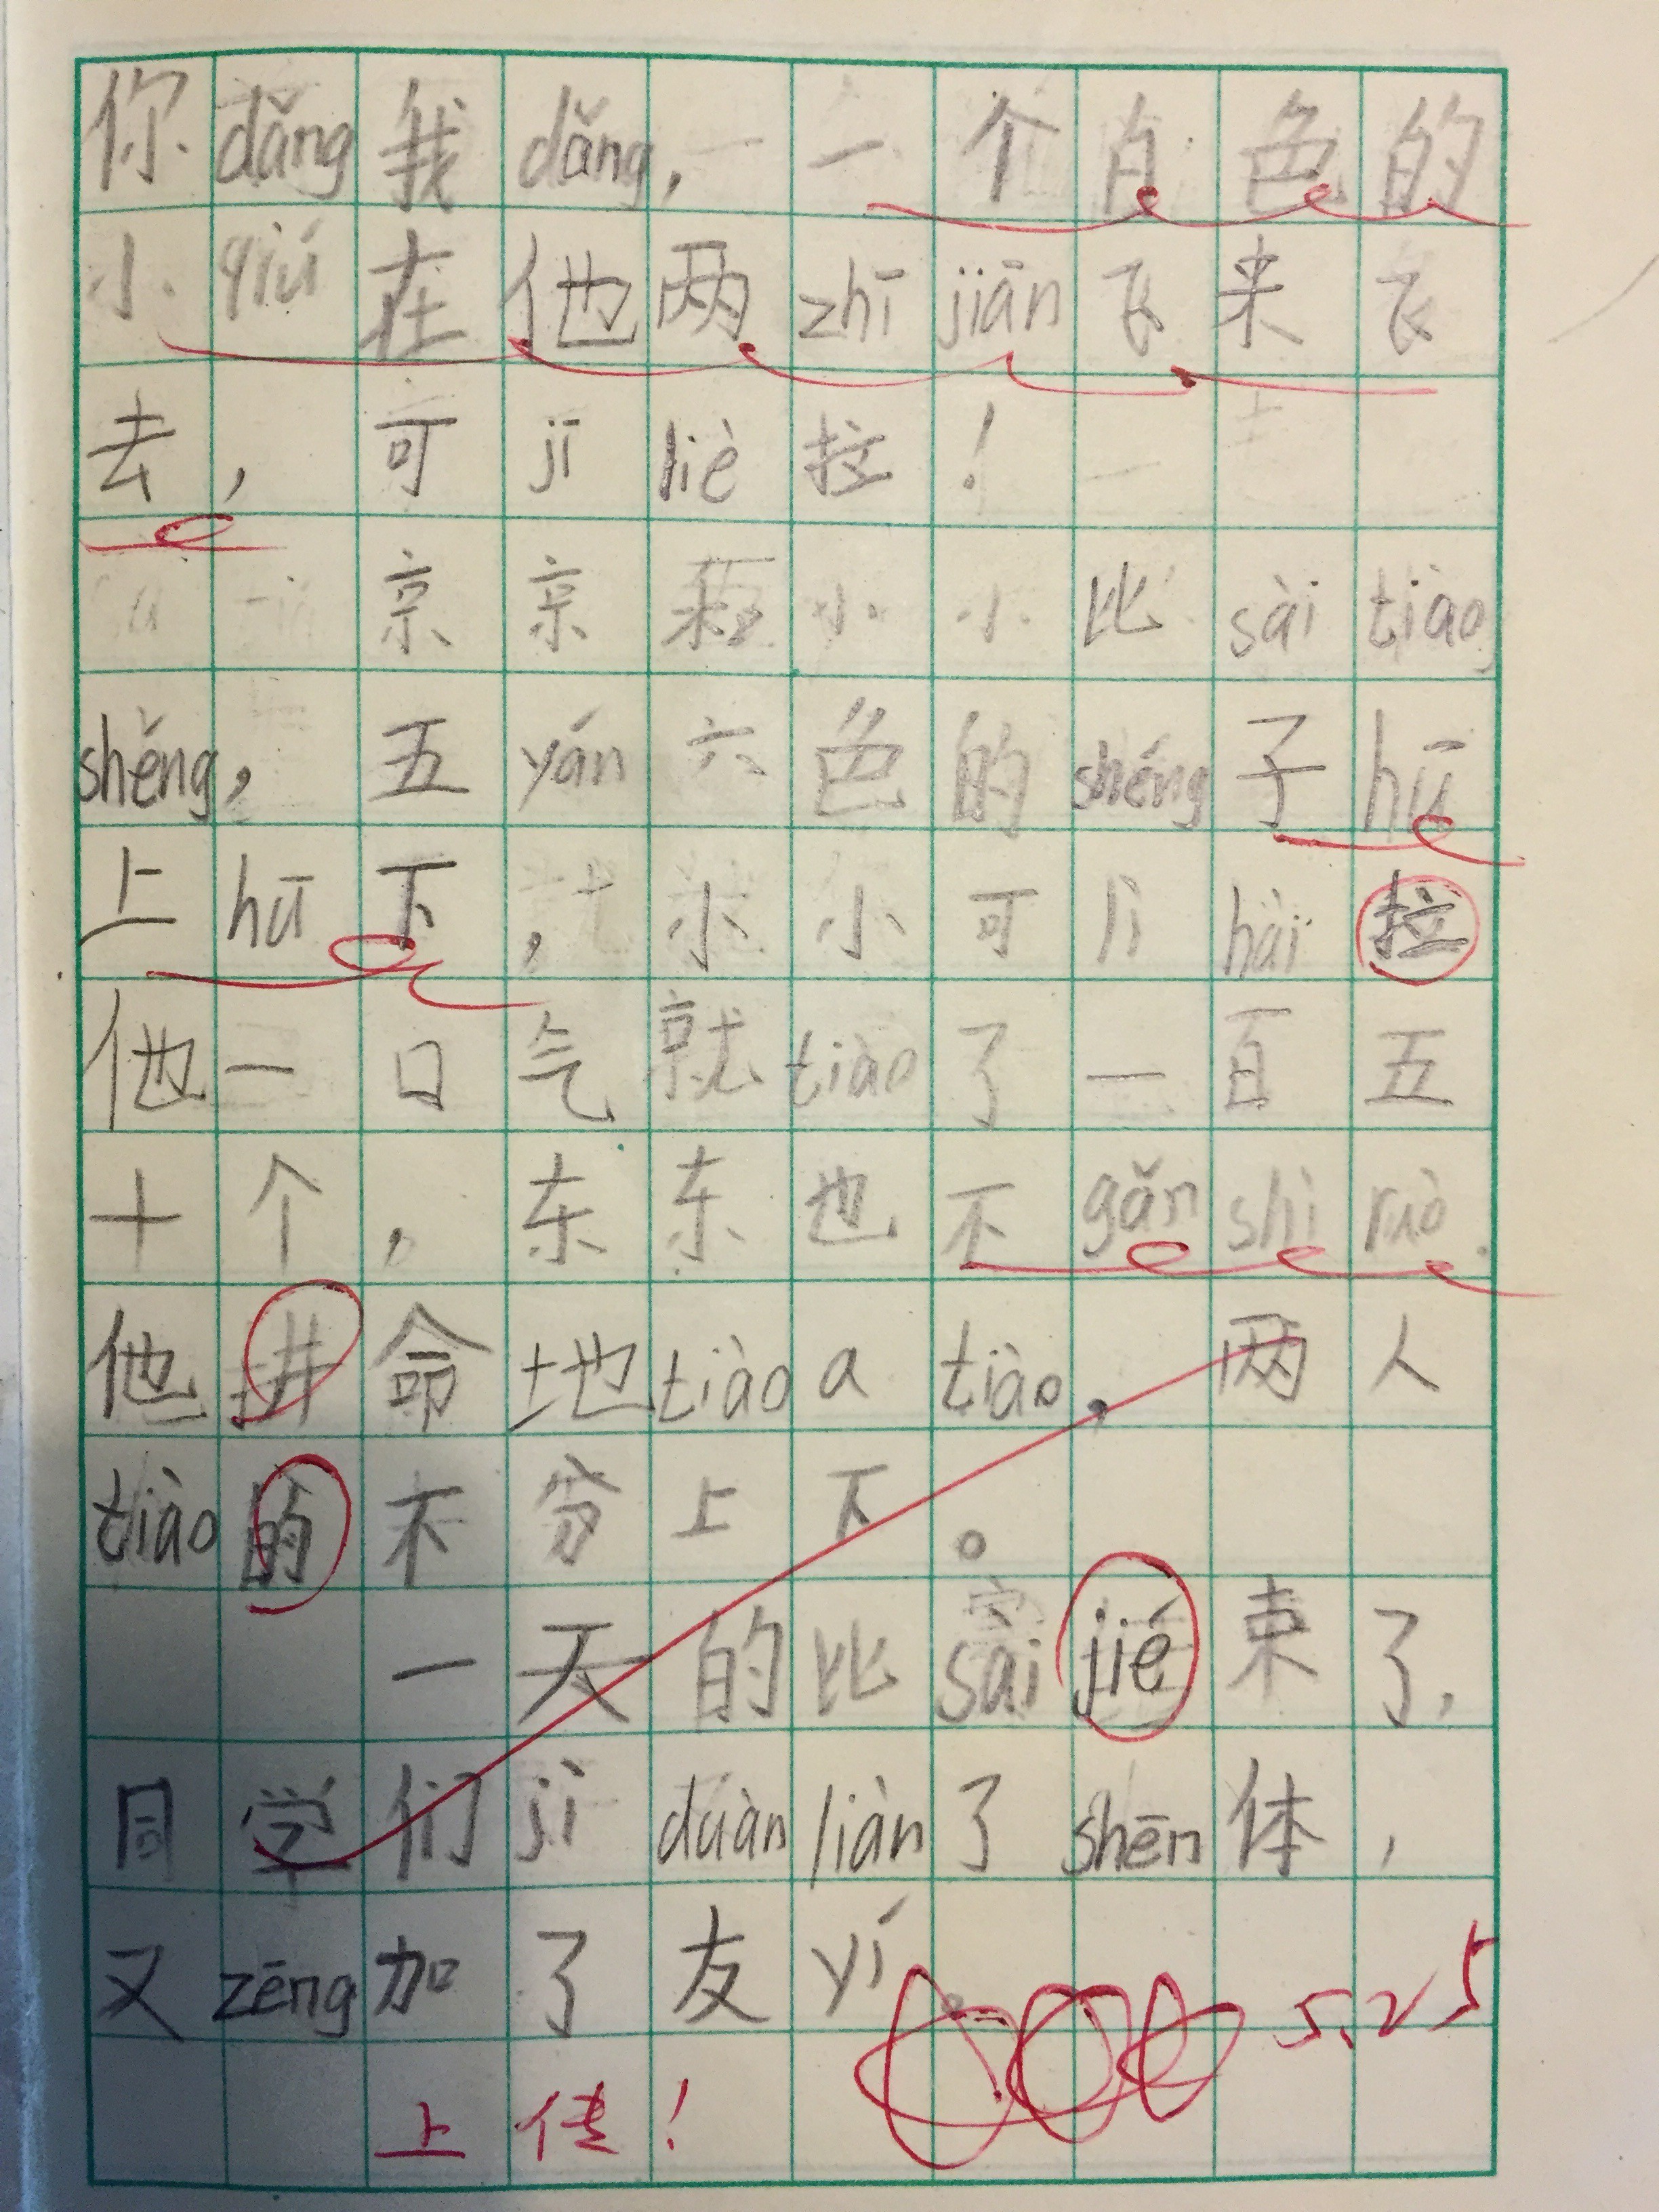 你dǎng我dǎng，一个白色的
小qiú在他两zhī jiān飞来飞
去，可jī liè拉！
东东和小小比sài tiào
shéng，五yán六色的shéng子hū
上hū下，小小可lì hài拉
他一口气就tiào了一百五
十个，东东也不gǎn shì ruò.
他拼命地tiào a tiào，两人
tiào的不分上下。
一天的比sài jié束了，
同学们jì duàn liàn了shēn体，
又zēng加了友yí。
5.25
上传！